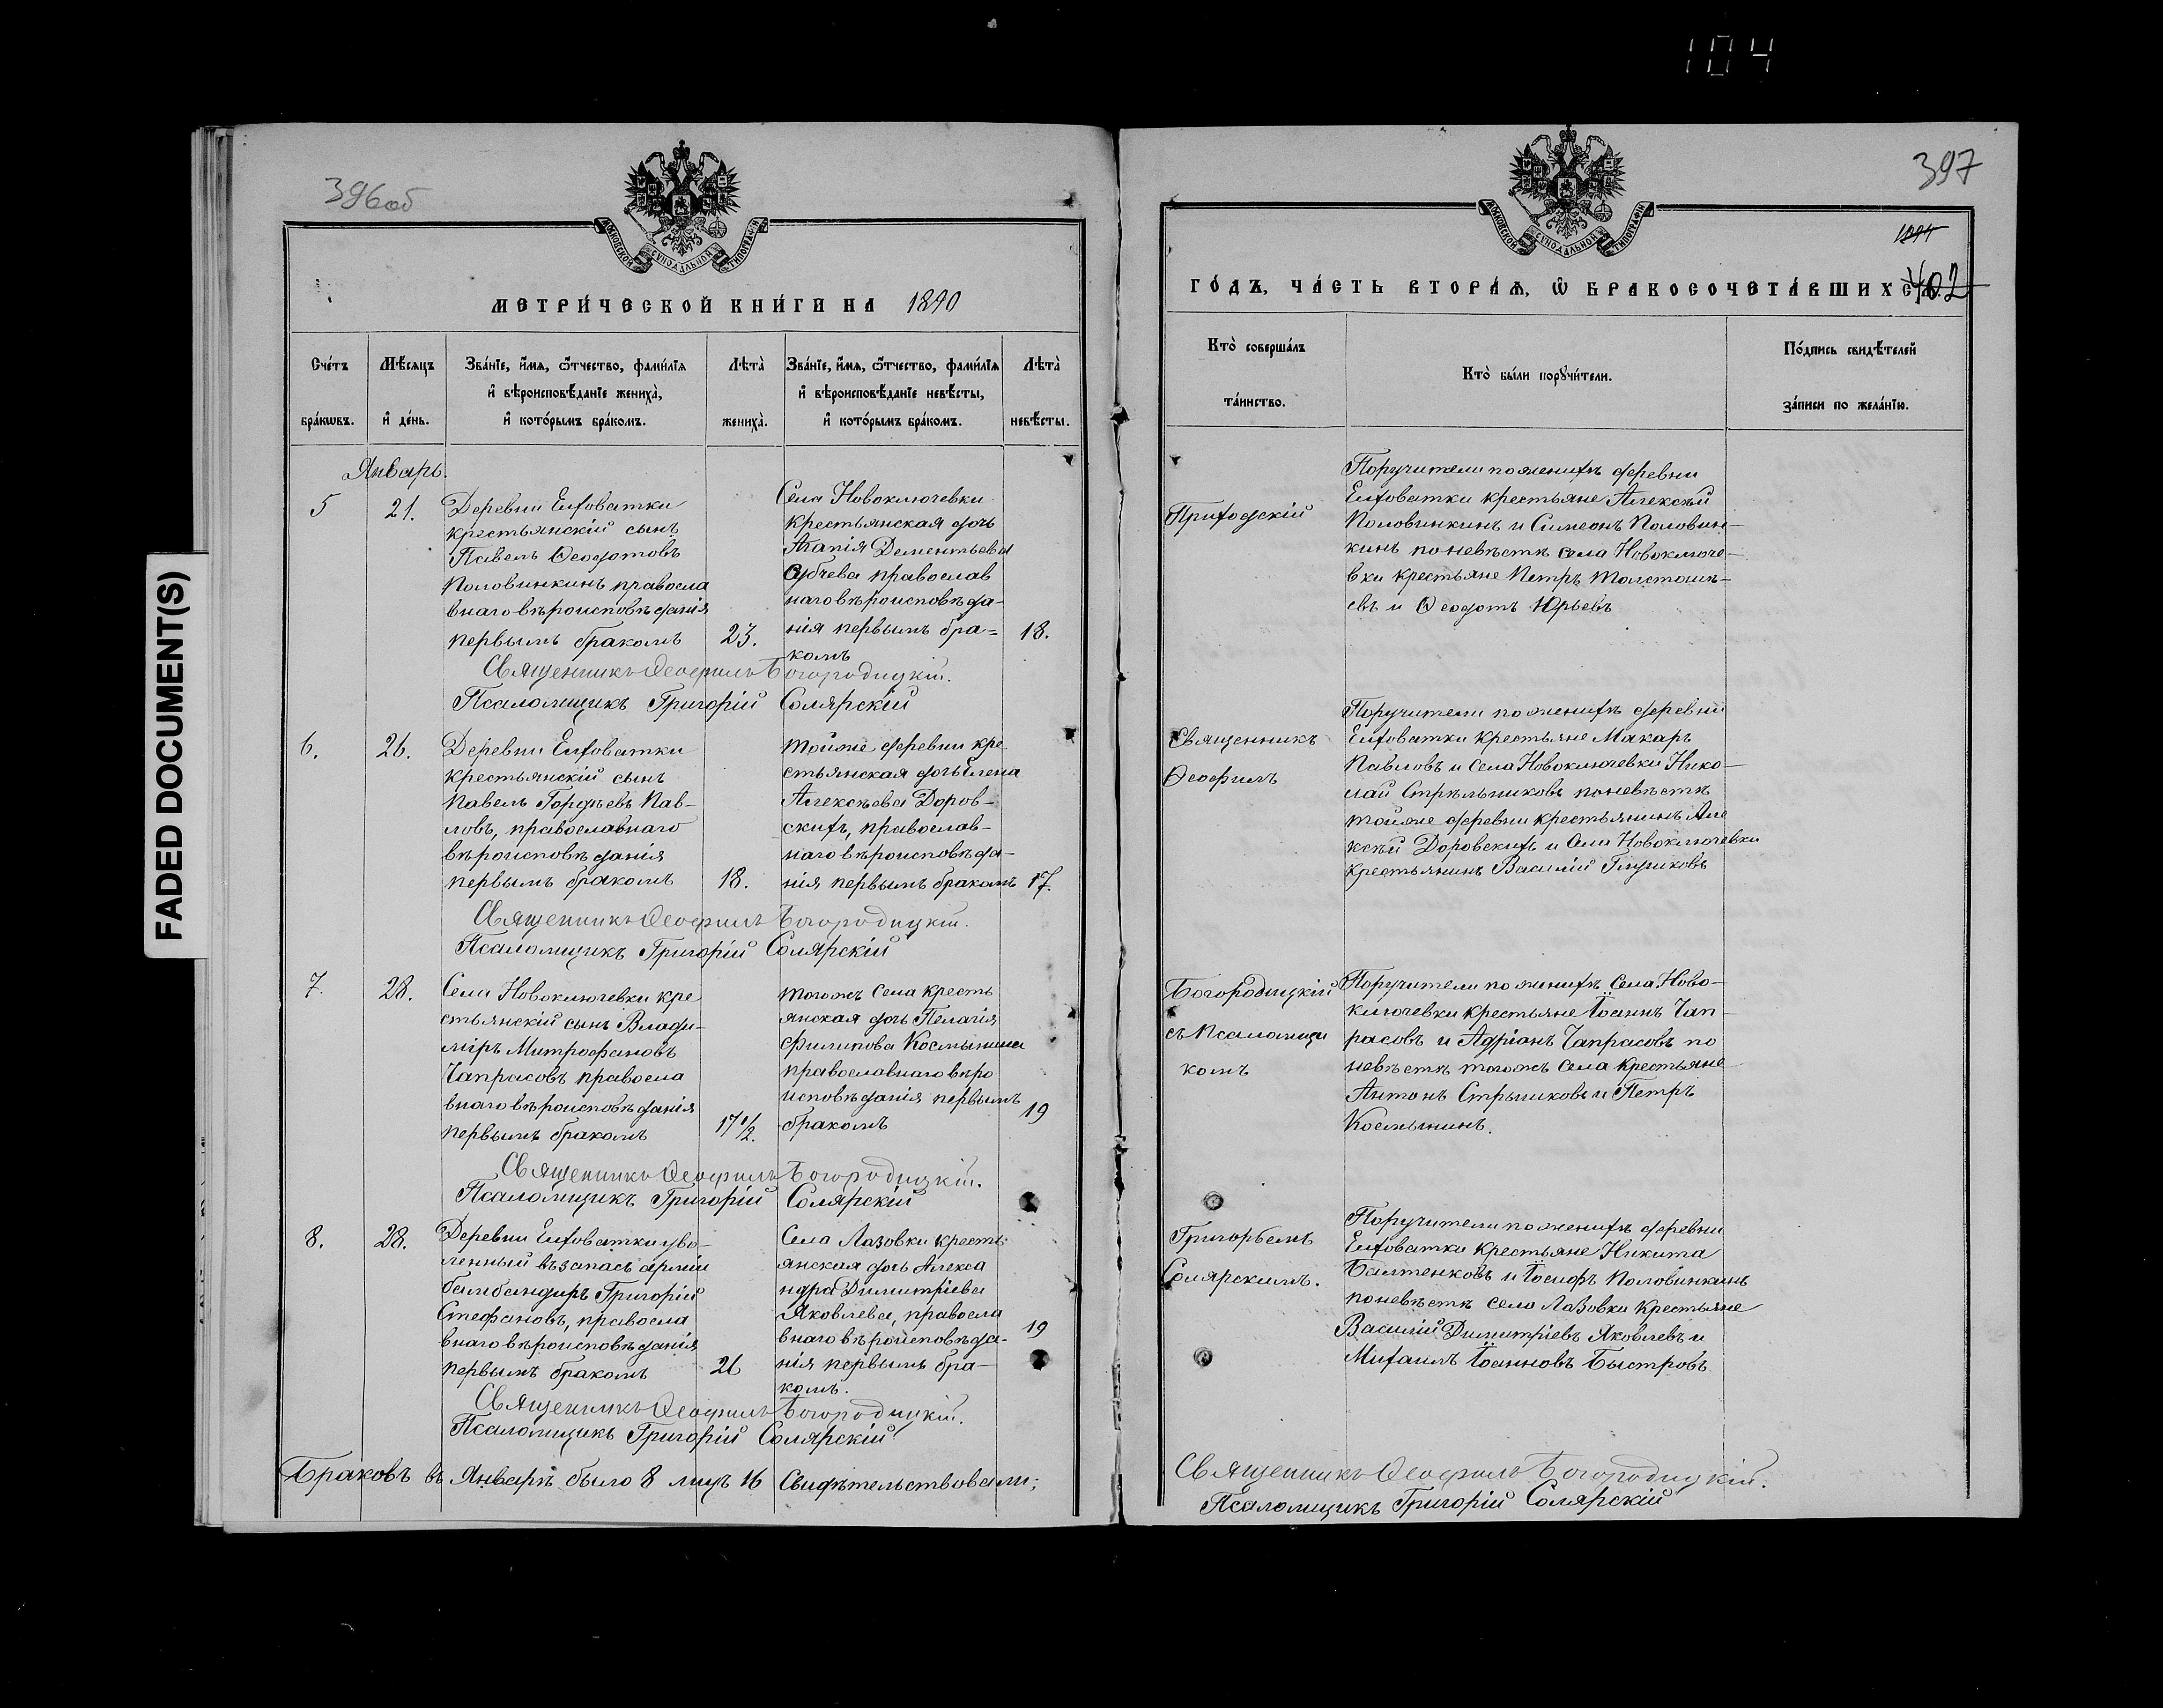 104
FADED DOCUMENT(S)
396об
МОСКОВСКОЙ СѴНОДАЛЬНОЙ ТИПОГРАФІИ
МЕТРИ́ЧЕСКОЙ КНИ́ГИ НА 1890
Сче́тъ бра́кѡвъ.
Мѣ́сяцъ и҆ де́нь.
Зва́нїе, и҆́мѧ, ѻ҆́тчество, фами́лїѧ
и҆ вѣроисповѣ́данїе жениха̀,
и҆ кото́рымъ бра́комъ.
Лѣта̀ жениха̀.
Зва́нїе, и҆́мѧ, ѻ҆́тчество, фами́лїѧ
и҆ вѣроисповѣ́данїе невѣ́сты,
и҆ кото́рымъ бра́комъ.
Лѣта̀ невѣ́сты.
Январь.
5
21.
Деревни Елховатки
крестьянскій сынъ
Павелъ Ѳеодотовъ
Половинкинъ правосла
внаго вѣроисповѣданія
первымъ бракомъ
23.
Села Новоключевки
крестьянская дочь
Агапія Дементьева
православ
наго вѣроисповѣда-
нія первымъ бра=
комъ
18.
Священникъ Ѳеофилъ Богородицкій.
Псаломщикъ Григорій Солярскій
6.
26.
Деревни Елховатки
крестьянскій сынъ
Павелъ Гордѣевъ Пав-
ловъ, православнаго
вѣроисповѣданія
первымъ бракомъ
18.
Тойже деревни кре
стьянская дочь Елена
Алексѣева Доров-
скихъ, православ-
наго вѣроисповѣда-
нія первымъ бракомъ
17.
Священникъ Ѳеофилъ Богородицкій.
Псаломщикъ Григорій Солярскій
7.
28.
Села Новоключевки кре
стьянскій сынъ Влади-
міръ Митрофановъ
Чапрасовъ правосла
внаго вѣроисповѣданія
первымъ бракомъ
17 1/2.
Тогожъ села кресть
янская дочь Пелагія
Филипова Космынина
православнаго вѣро
исповѣданія первымъ
бракомъ
19
Священникъ Ѳеофилъ Богородицкій.
Псаломщикъ Григорій Солярскій
8.
28.
Деревни Елховатки уво-
ленный въ запасъ арміи
бамбандиръ Григорій
Стефановъ, правосла
внаго вѣроисповѣданія
первымъ бракомъ
26
Села Лазовки кресть
янская дочь Алекса
ндра Димитріева
Яковлева, правосла
внаго вѣроисповѣда-
нія первымъ бра-
комъ.
19
Священникъ Ѳеофилъ Богородицкій.
Псаломщикъ Григорій Солярскій
Браковъ въ Январѣ было 8 лицъ 16 Свидѣтельствовали;
397
402
МОСКОВСКОЙ СѴНОДАЛЬНОЙ ТИПОГРАФІИ
ГО́ДЪ, ЧА́СТЬ ВТОРА́Ѧ, Ѽ БРАКОСОЧЕТА́ВШИХСѦ.
Кто̀ соверша́лъ
та́инство.
Кто̀ бы́ли порꙋчи́тели.
По́дпись свидѣ́телей
за́писи по жела́нїю.
Приходскій
Священникъ
Ѳеофилъ
Богородицкій
съ Псаломщи
комъ
Григорьемъ
Солярскимъ.
Поручители по женихѣ деревни
Елховатки крестьяне Алексѣй
Половинкинъ и Симеонъ Половин-
кинъ по невѣстѣ села Новоключе-
вки крестьяне Петръ Толстошѣ-
евъ и Ѳеодотъ Юрьевъ
Поручители по женихѣ деревни
Елховатки крестьяне Макаръ
Павловъ и села Новоключевки Нико-
лай Стрѣльниковъ по невѣстѣ
тойже деревни крестьянинъ Але
ксѣй Доровскихъ и села Новоключевки
крестьянинъ Василій
Поручители по женихѣ села Ново-
ключевки крестьяне Іоаннъ Чап-
расовъ и Адріанъ Чапрасовъ по
невѣстѣ тогожъ села крестьяне
Антонъ Стрыгиковъ и Петръ
Космынинъ.
Поручители по женихѣ деревни
Елховатки крестьяне Никита
Балтенковъ и Іосифъ Половинкинъ
по невѣстѣ село Лазовки крестьяне
Василій Димитріевъ Яковлевъ и
Михаилъ Іоанновъ Быстровъ
Священникъ Ѳеофилъ Богородицкій.
Псаломщикъ Григорій Солярскій